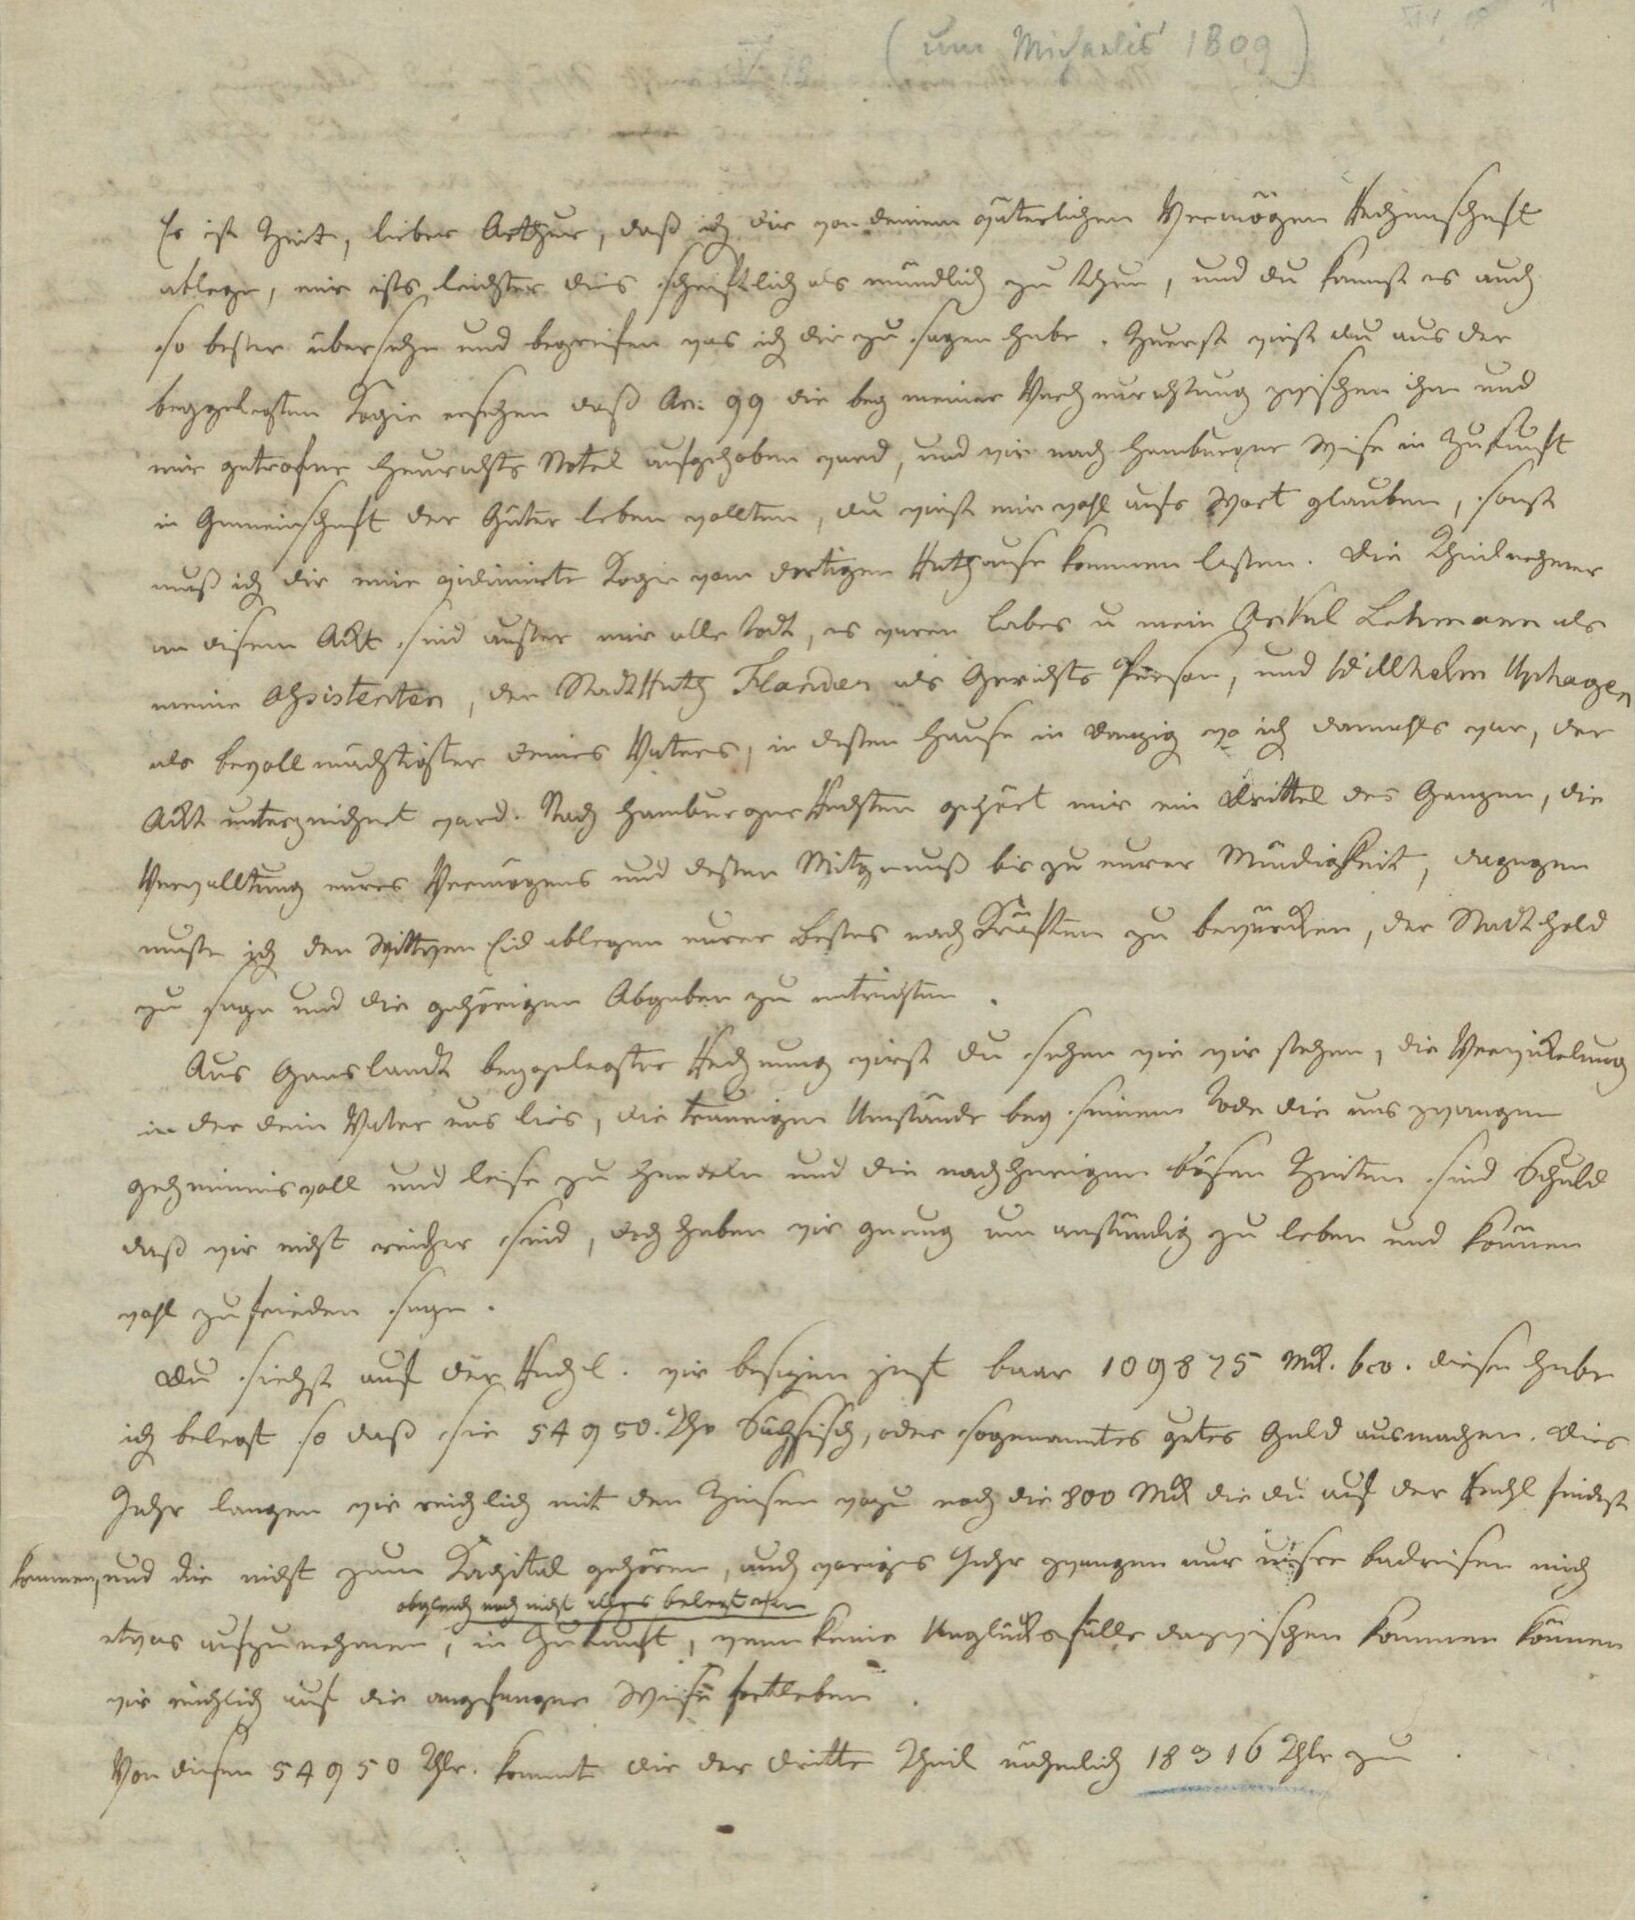 (um Michaelis 1809)
Es ist Zeit, lieber Arthur, daß ich dir von deinem väterlichen Vermögen Rechenschaft
ablege, mir ists leichter dies schriftlich als mündlich zu thun, und du kannst es auch
so besser übersehn und begreifen was ich dir zu sagen habe. Zuerst wirst du aus der
beygelegten Kopie ersehen daß An: 99 die bey meiner Verheurathung zwischen ihm und
mir getrofne Heuraths Notel aufgehoben ward, und wir nach Hamburger Weise in Zukunft
in Gemeinschaft der Güter leben wollten, du wirst mir wohl aufs Wort glauben, sonst
muß ich dir eine vidimirte Kopie vom dortigen Rathhause kommen lassen. Die Theilnehmer
an diesem Akt sind ausser mir alle todt, es waren Labes u mein Onkel Lehmann als
meine Assistenten, der Stadt Rath Flander als Gerichts Person, und Willhelm Uphagen
als bevollmächtigter deines Vaters, in dessen Hause in Danzig wo ich damahls war, der
Akt unterzeichnet ward. Nach Hamburger Rechten gehört mir ein Drittel des Ganzen, die
Verwalltung eures Vermögens und dessen Mitgenuß bis zu eurer Mündigkeit, dagegen
muste ich den Wittwen Eid ablegen eurer Bestes nach Kräften zu bewürken, der Stadt hold
zu seyn und die gehörigen Abgaben zu entrichten.
Aus Ganslandt beygelegter Rechnung wirst du sehen wie wir stehen, die Verwickelung
in der dein Vater uns lies, die traurigen Umstände bey seinem Tode die uns zwangen
geheimnisvoll und leise zu handeln und die nachherigen bösen Zeiten sind Schuld
daß wir nicht reicher sind, doch haben wir genug um anständig zu leben und können
wohl zufrieden seyn.
Du siehst auf der Rech. wir besizen jezt baar 109875 Mk. bco. diese habe
ich belegt so daß sie 54950. Thr Sächsisch, oder sogenanntes gutes Geld ausmachen. Dies
Jahr langen wir reichlich mit den Zinsen wozu noch die 800 Mk die du auf der Rech findest
kommen, und die nicht zum Kapital gehören, auch voriges Jahr zwangen nur unsre Badreisen mich
obgleich noch nicht alles belegt war
etwas aufzunehmen, in Zukunft, wenn keine Unglücksfälle dazwischen kommen können
wir reichlich auf die angefangne Weise fortleben.
Von diesen 54950 Thlr. kommt dir der dritte Theil nähmlich 18316 Thlr zu.